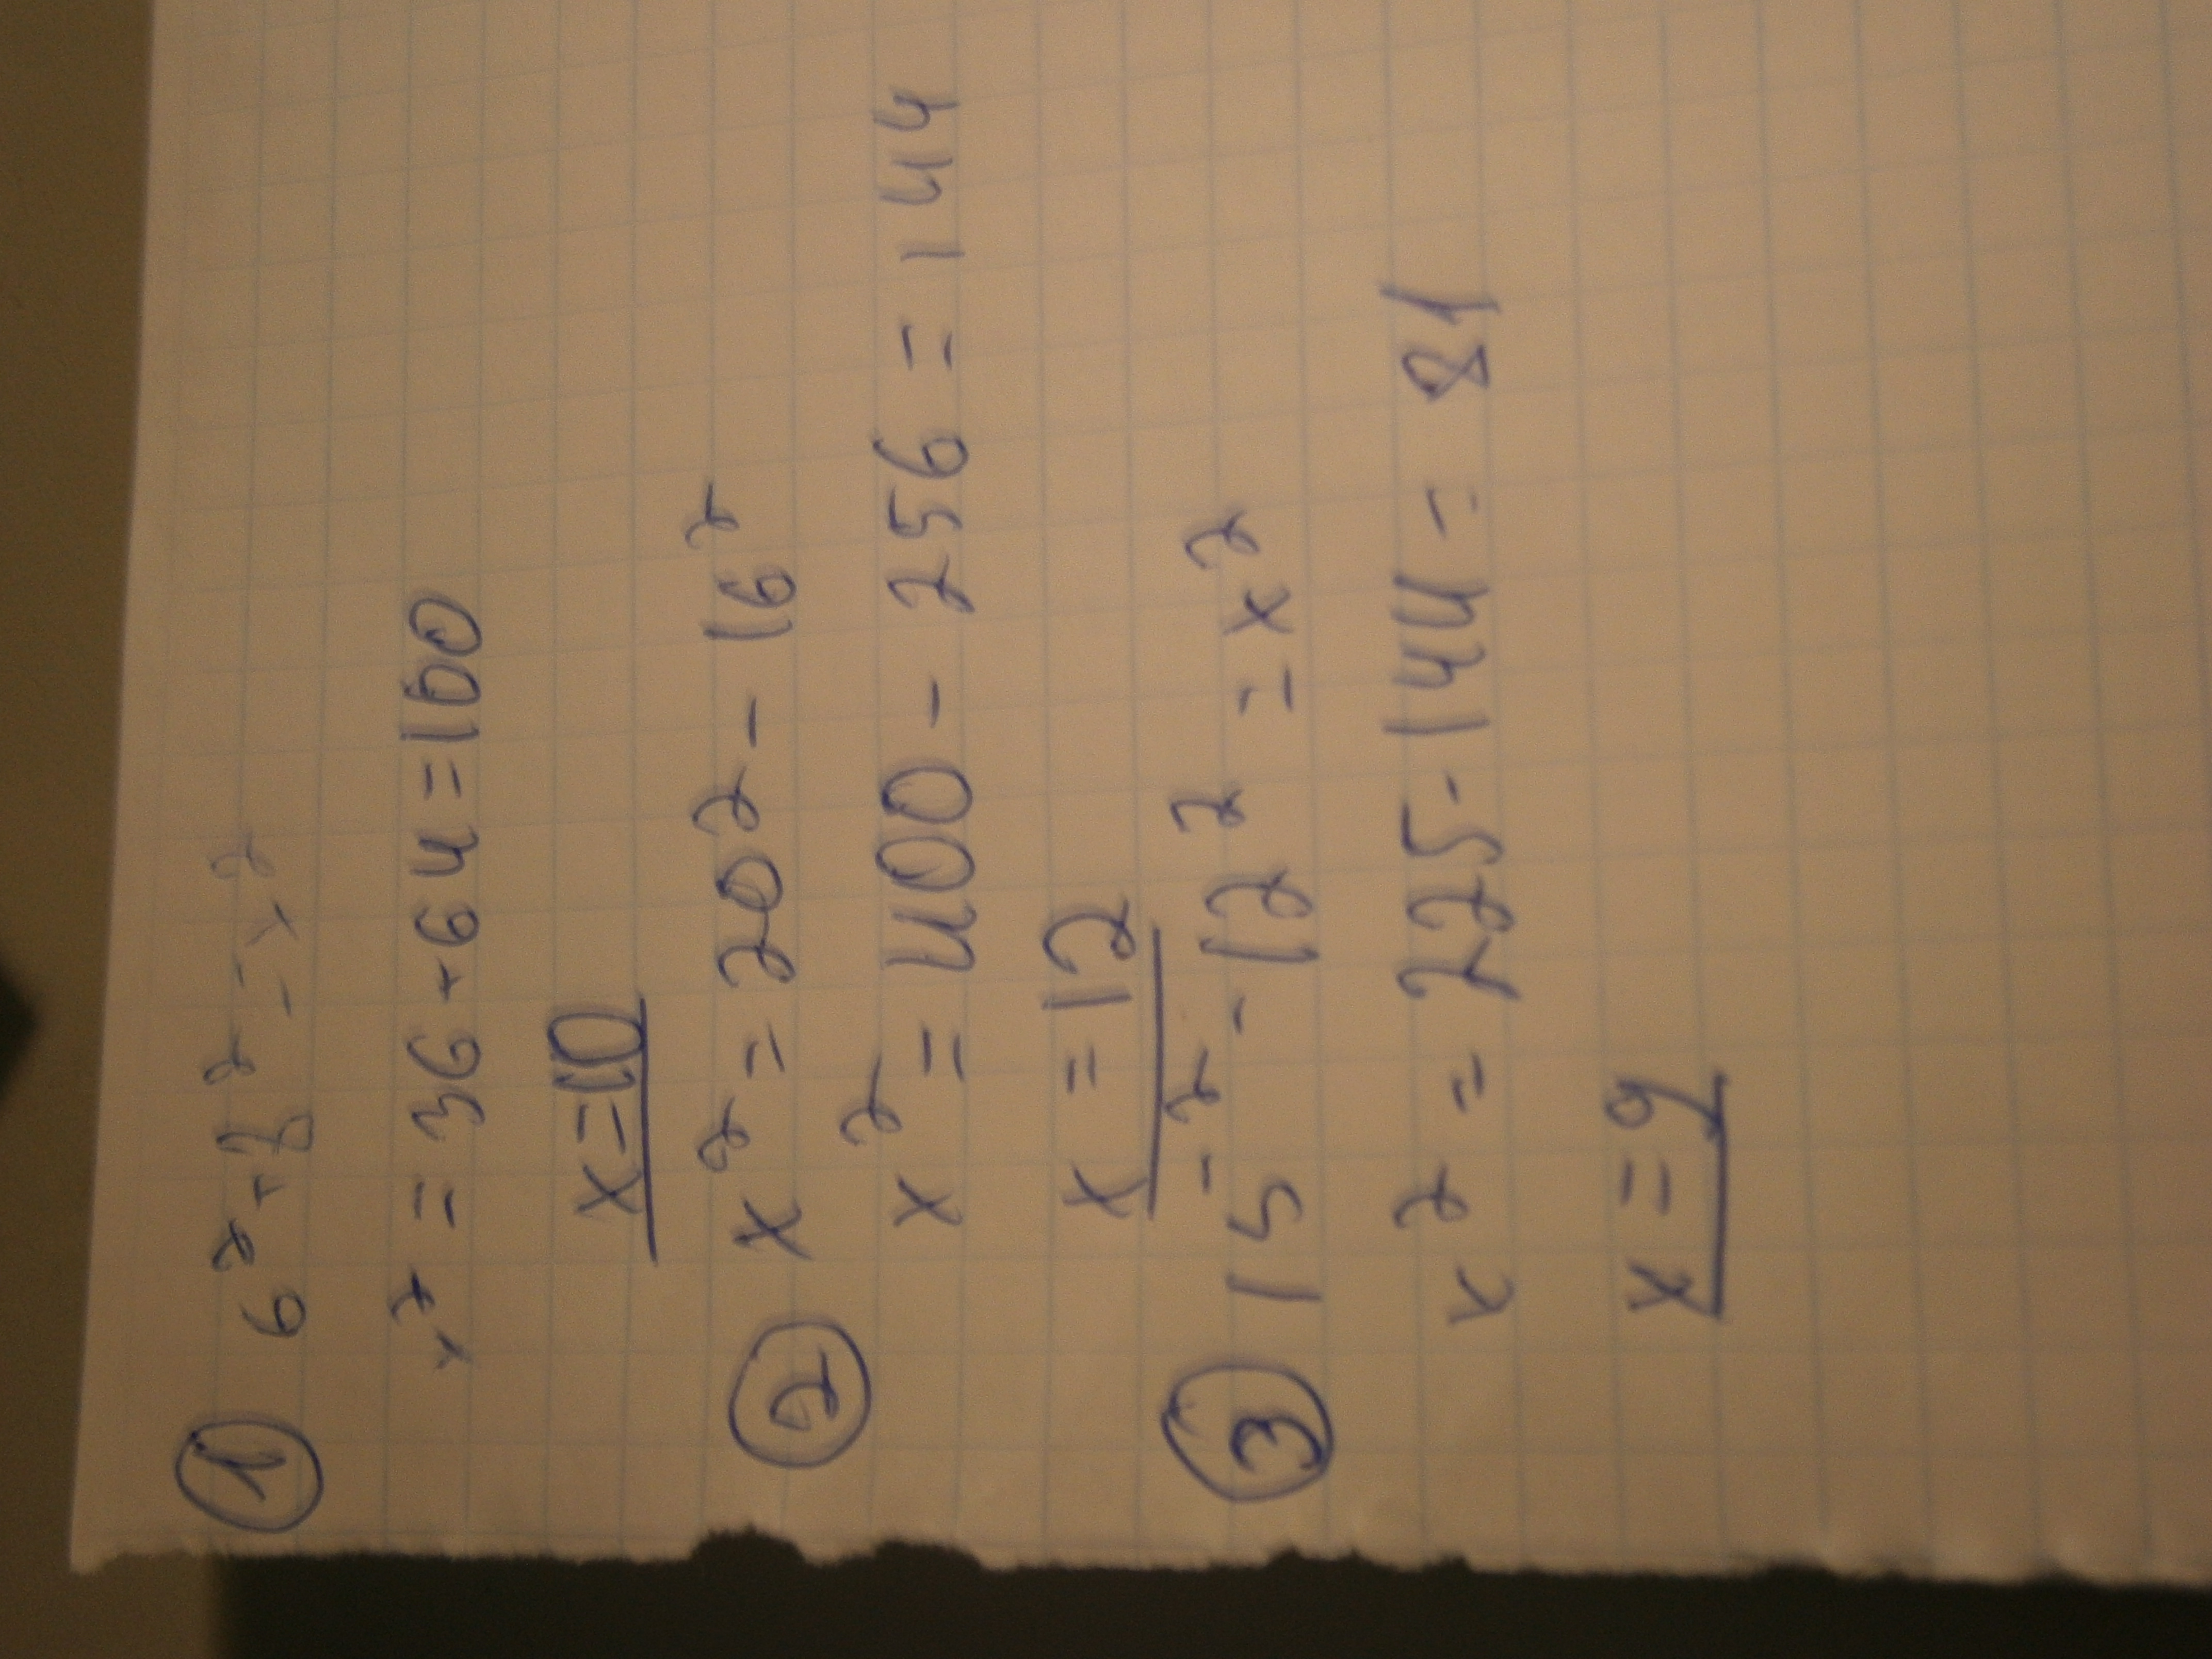 ① 6² + 8² = x²
x² = 36 + 64 = 100
x = 10
② x² = 20² - 16²
x² = 400 - 256 = 144
x = 12
③ 15² - 12² = x²
x² = 225 - 144 = 81
x = 9